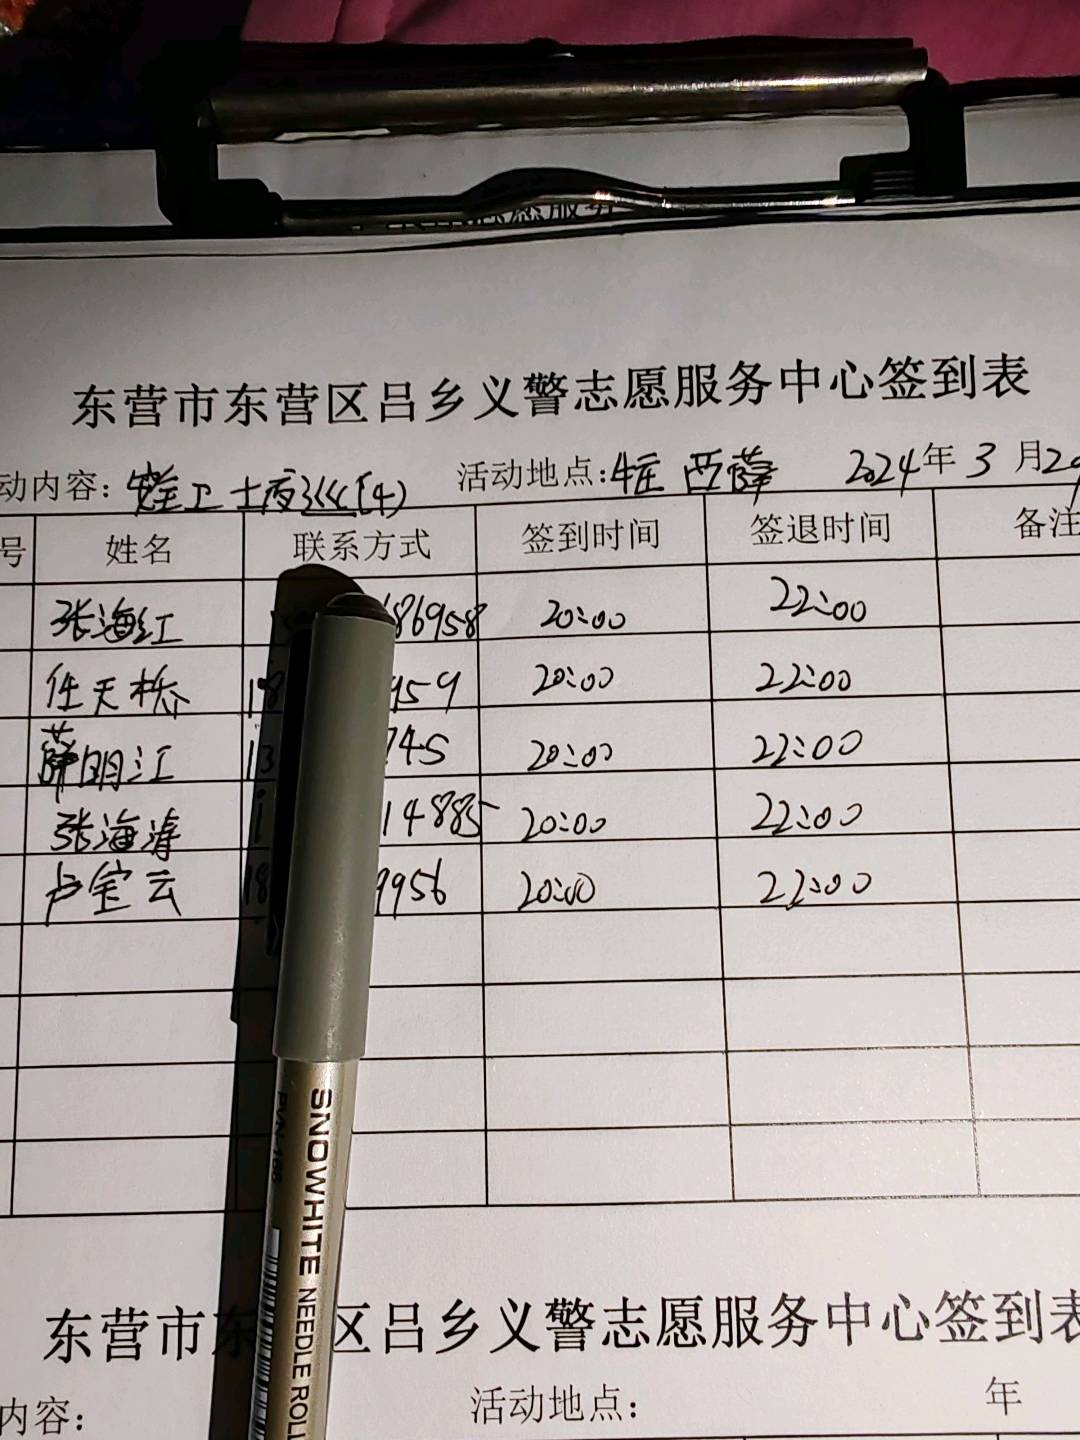 东营市东营区吕乡义警志愿服务中心签到表
动内容: 夜巡(4) 活动地点: 西薛 2024年3月29
号 姓名 联系方式 签到时间 签退时间 备注
张海红 86958 20:00 22:00
任天栋 18 959 20:00 22:00
薛明江 13 745 20:00 22:00
张海涛 1 14885 20:00 22:00
卢宝云 18 9956 20:00 22:00
SNOWHITE NEEDLE ROLL
PVN-166
东营市东 区吕乡义警志愿服务中心签到表
内容: 活动地点: 年